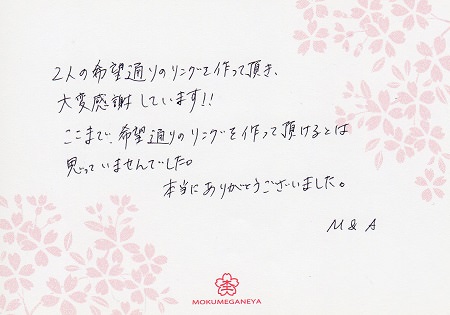 2人の希望通りのリングを作って頂き、
大変感謝しています!!
ここまで、希望通りのリングを作って頂けるとは
思っていませんでした。
本当にありがとうございました。
M & A
MOKUMEGANEYA